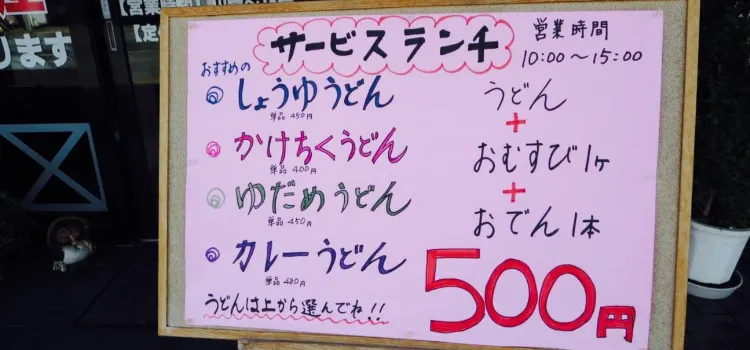 ります
【営業
【定
サービスランチ
営業時間
10:00～15:00
おすすめの
しょうゆうどん
単品 450円
かけちくうどん
単品 400円
ゆだめうどん
単品 450円
カレーうどん
単品 480円
うどんは上から選んでね!!
うどん
+
おむすび1ヶ
+
おでん1本
500円